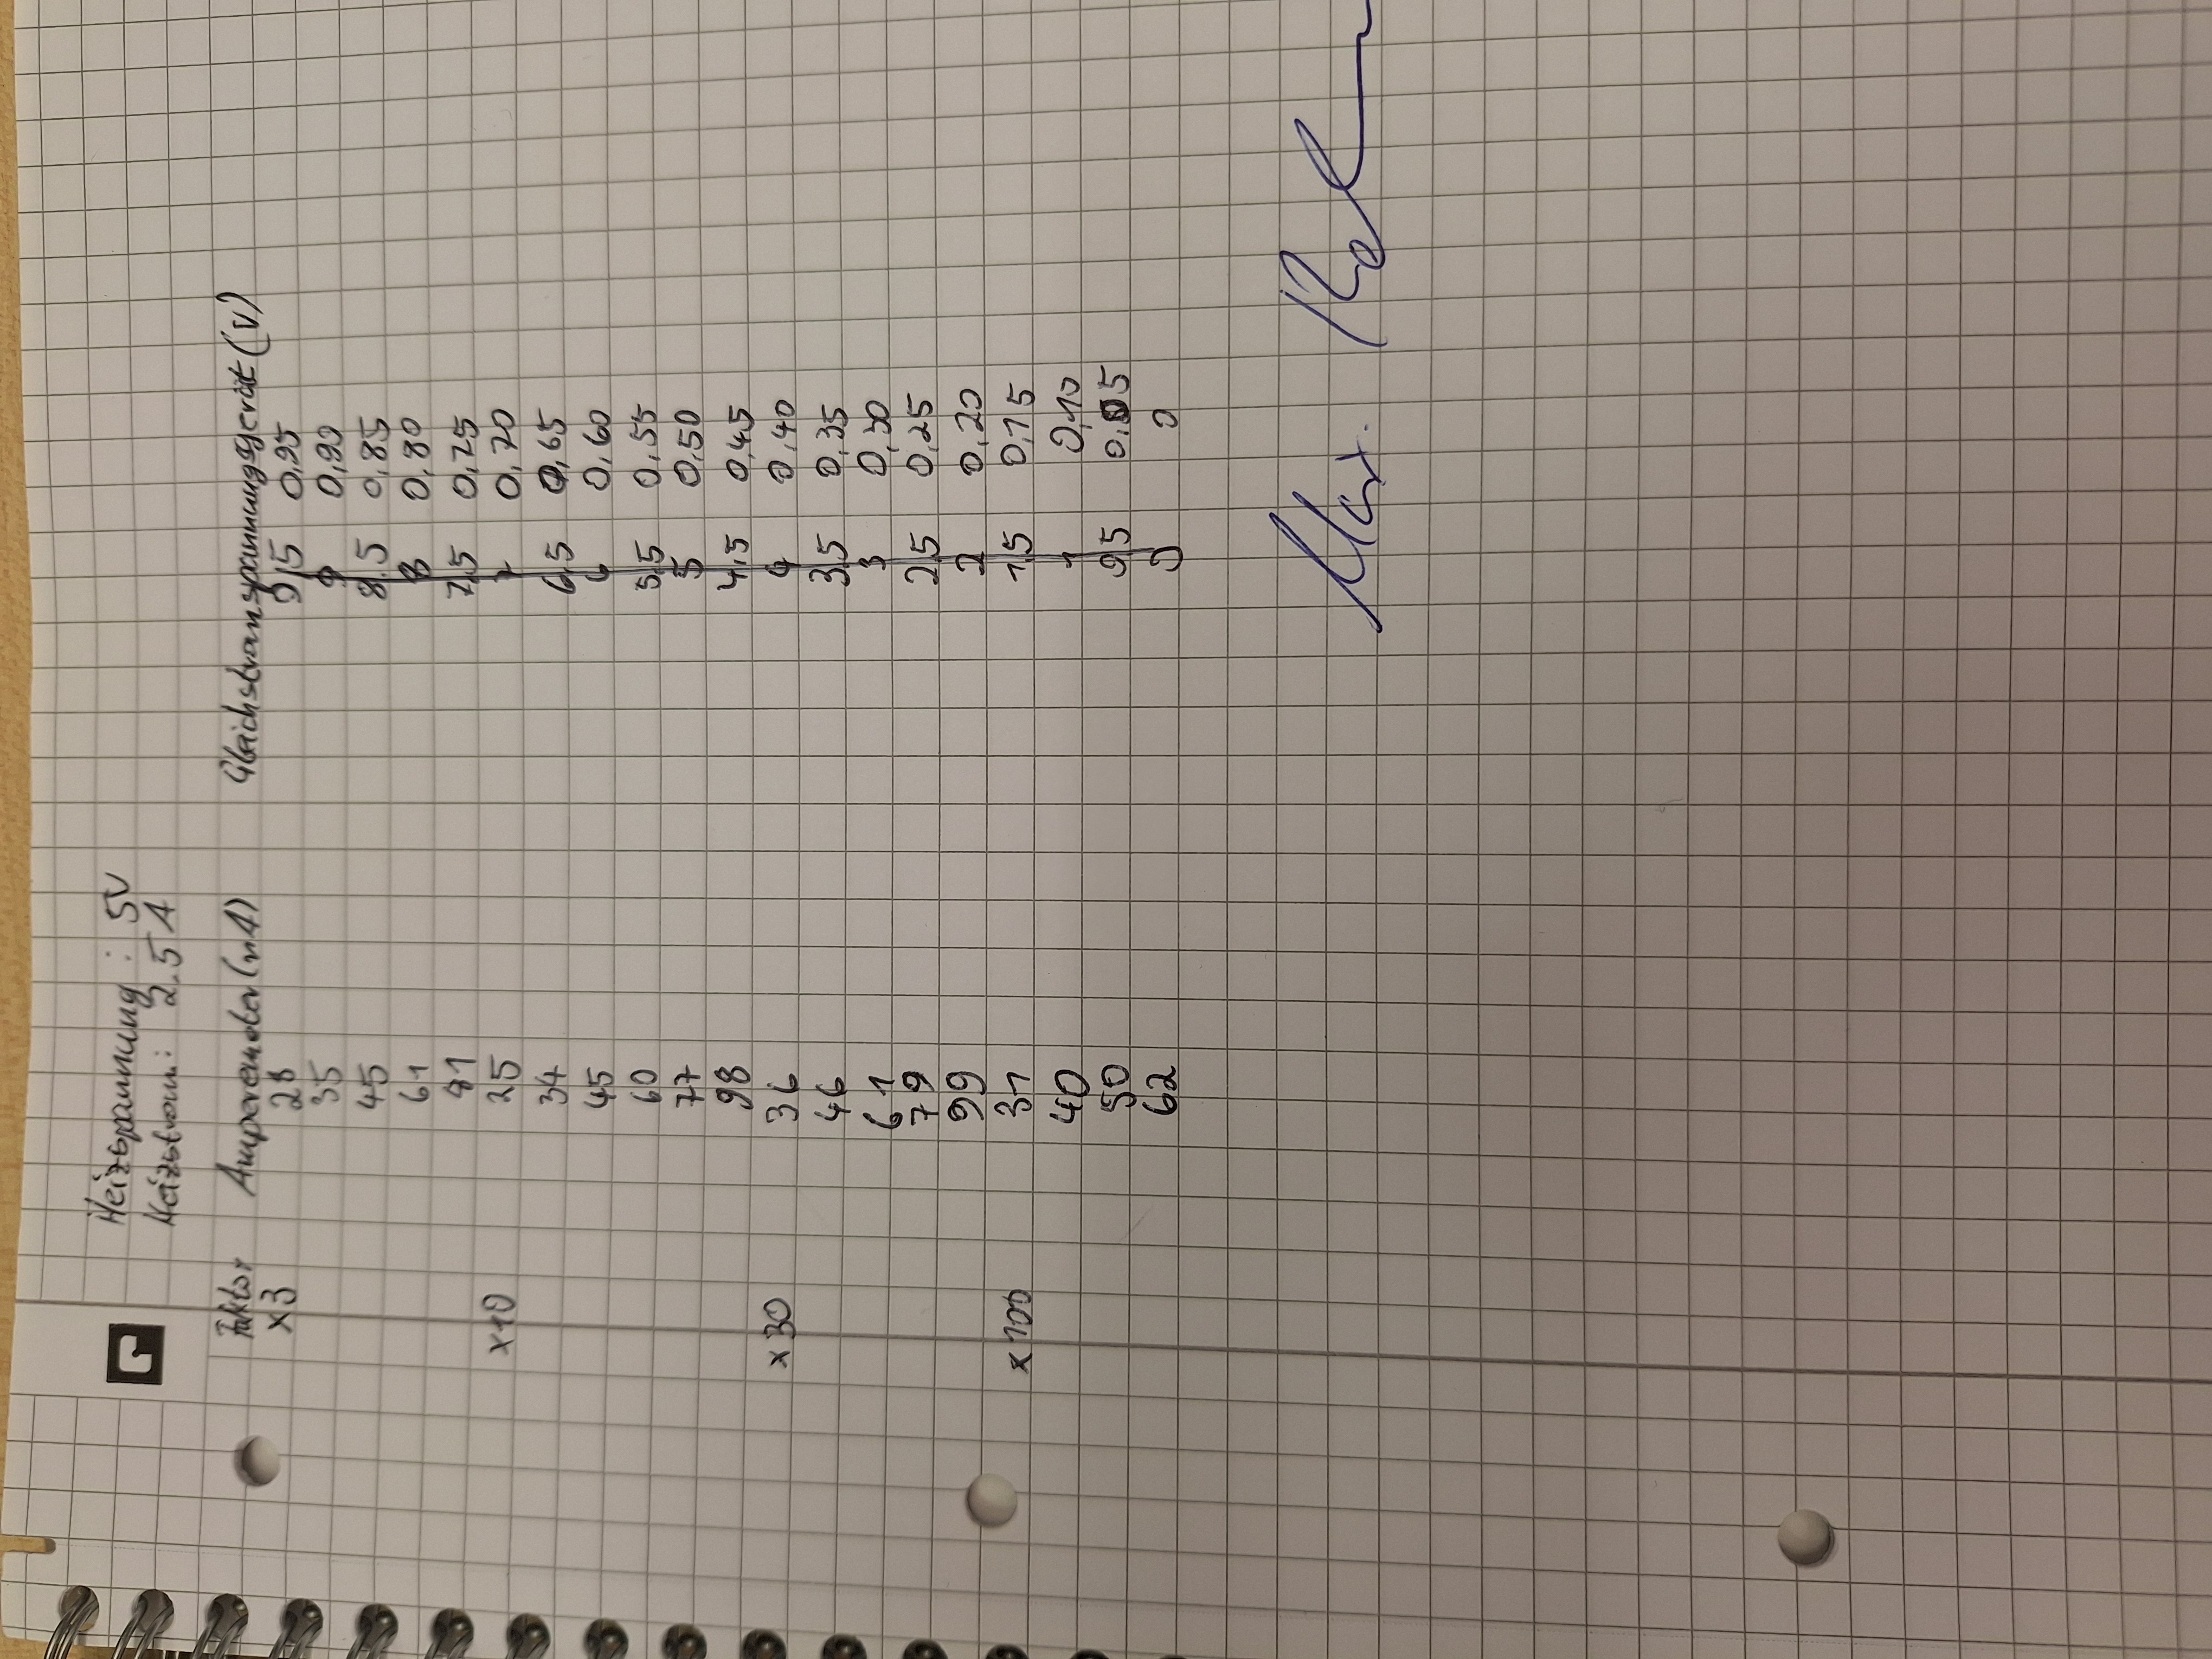 Heizspannung : 5V
Heizstrom: 2.5 A
Faktor Amperemeter (nA) Gleichstromspannungsgerät (V)
x3 28 9,5 0,95
35 9 0,90
45 8,5 0,85
61 8 0,80
81 7,5 0,75
x10 25 7 0,70
34 6,5 0,65
45 6 0,60
60 5,5 0,55
77 5 0,50
98 4,5 0,45
x30 36 4 0,40
46 3,5 0,35
61 3 0,30
79 2,5 0,25
99 2 0,20
x100 31 1,5 0,15
40 1 0,10
50 0,5 0,05
62 0 0
Max.